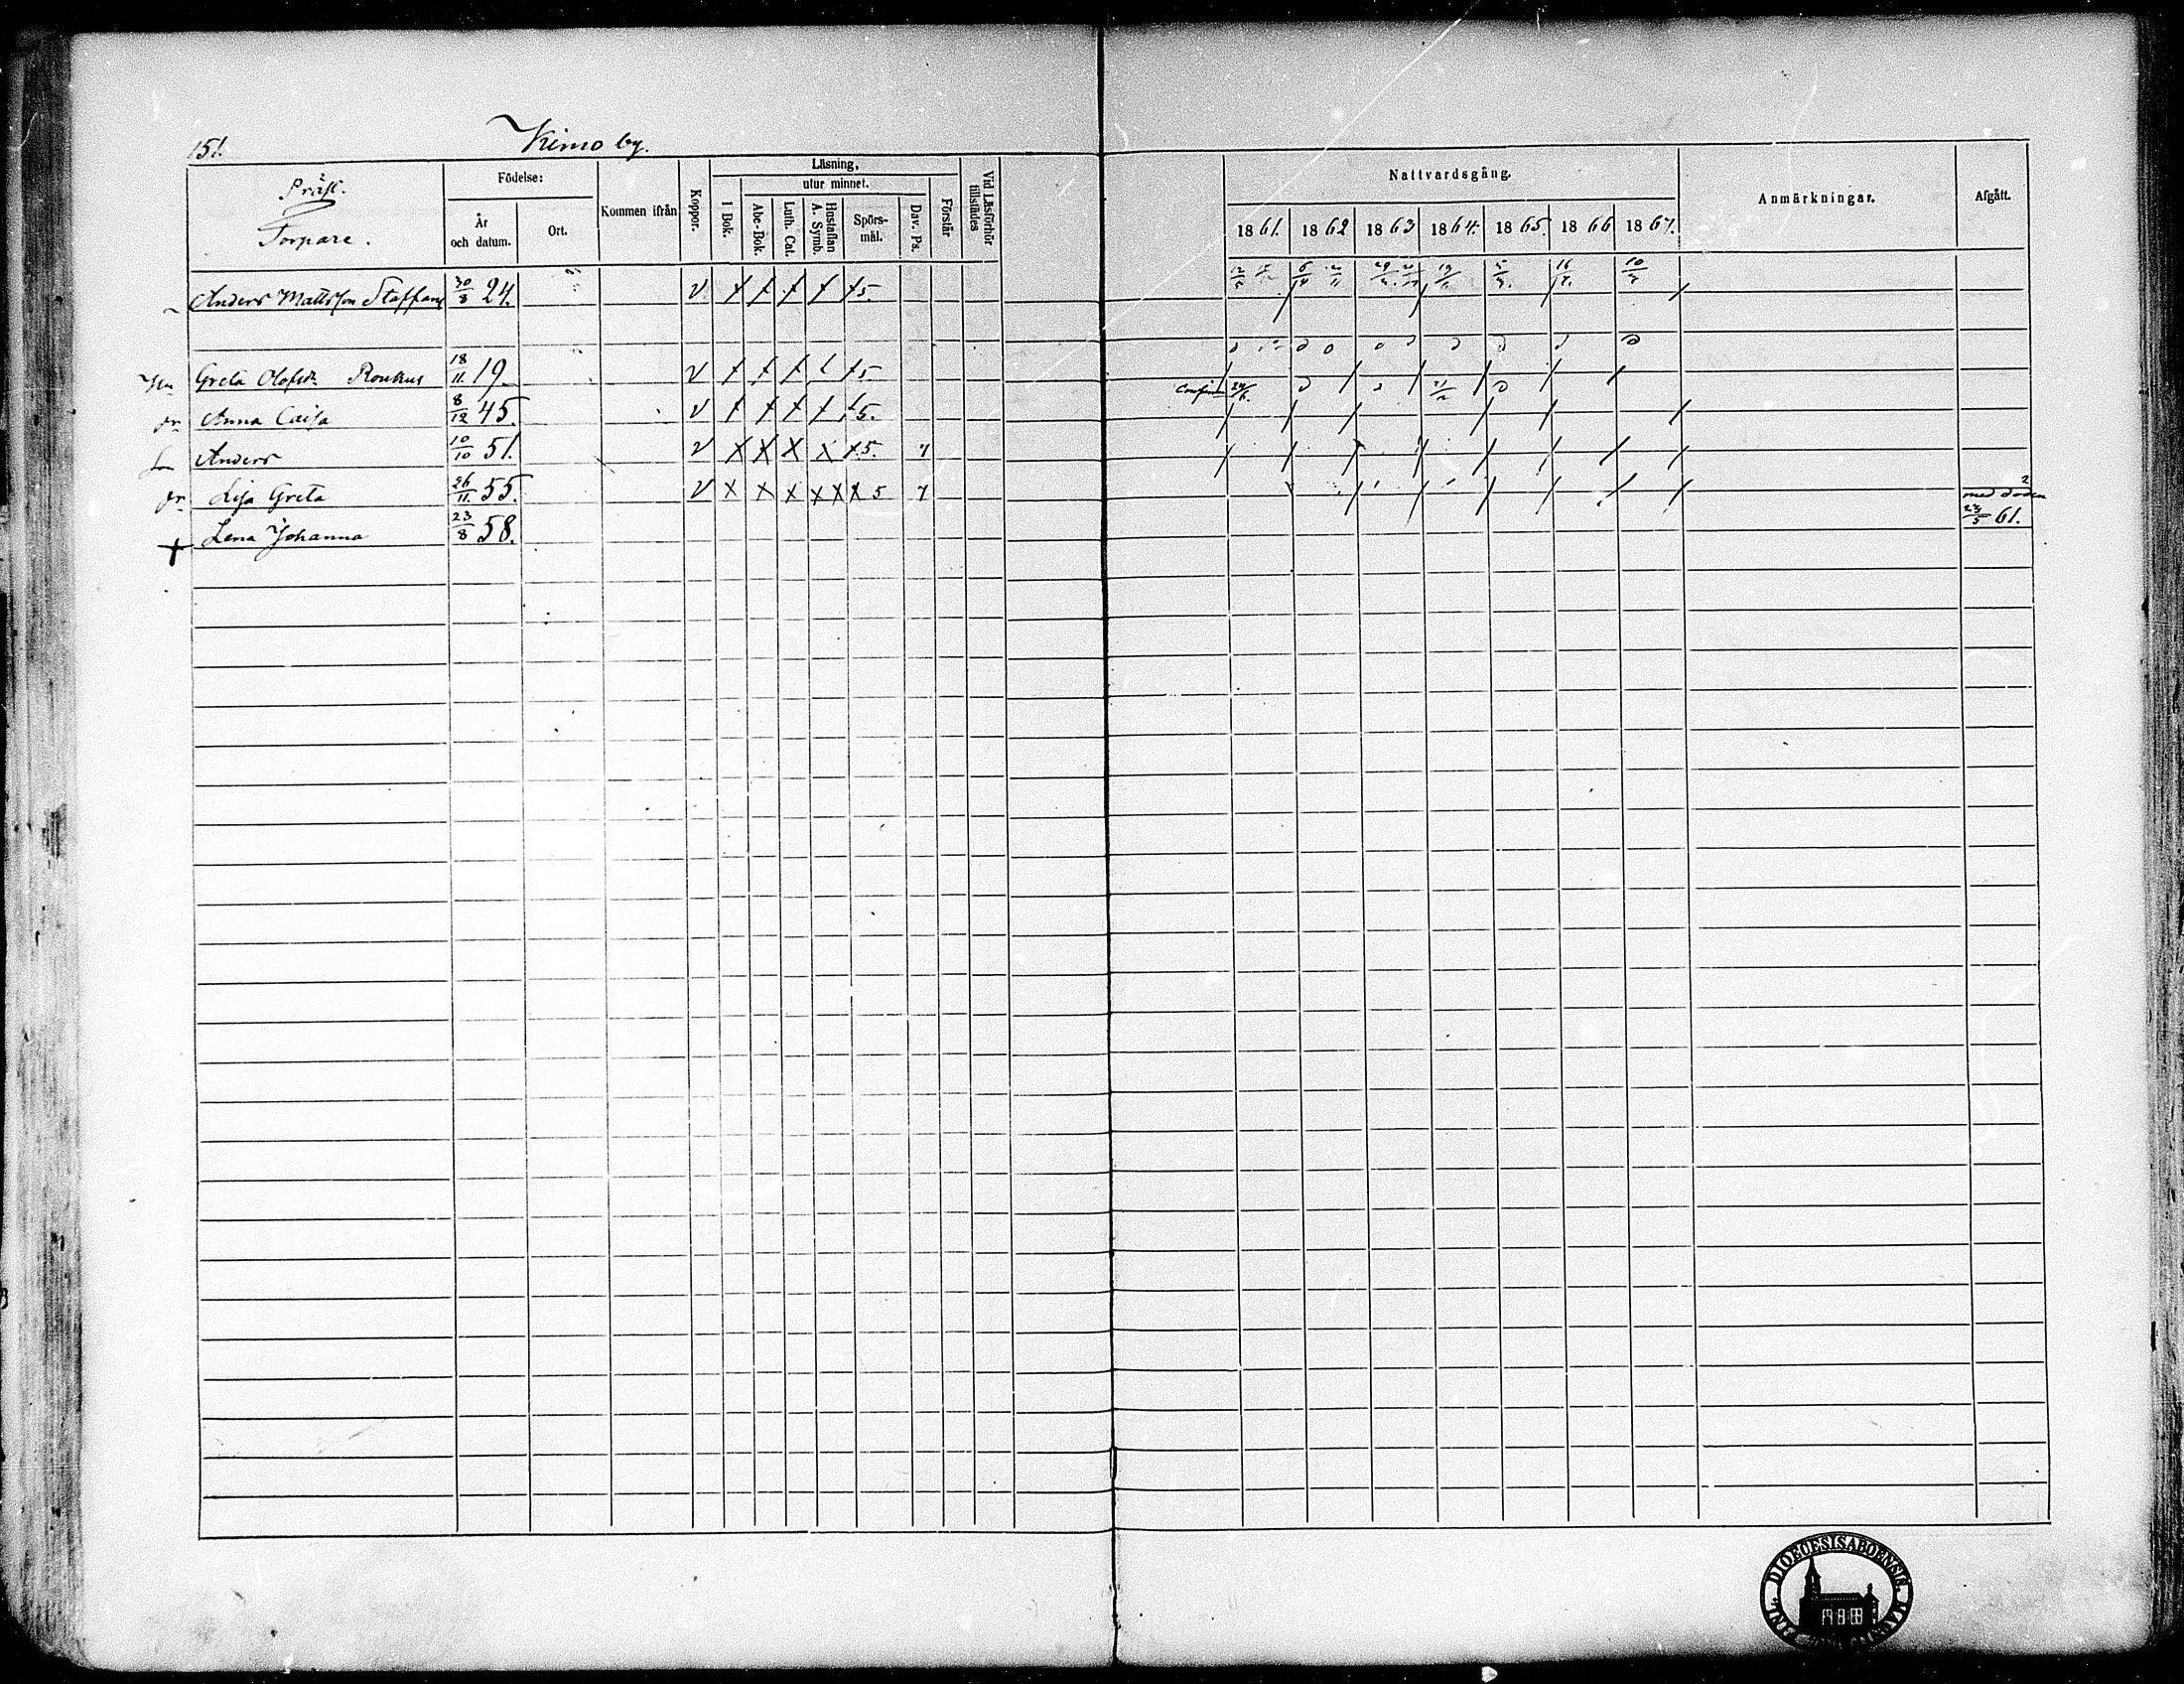 151. Kimo by.
Präst.
Torpare.
Födelse:
År och datum.
Ort.
Kommen ifrån
Koppor.
Läsning,
utur minnet.
I Bok.
Abc-Bok.
Luth. Cat.
Hustaflan A. Symb.
Spörs-mål.
Dav. Ps.
Förstår
Vid Läsförhör tillstädes
Nattvardsgång.
1861. 1862 1863 1864. 1865. 1866 1867.
Anmärkningar.
Afgått.
Anders Mattsson Staffans 30/8 24. v 5
Greta Olofsdr 18/11. 19. v 5.
dr Anna Caisa 8/12 45. v 5. 24/6.
Anders 10/10 51. v x x x x x 5.
dr Lisa Greta 26/11. 55. v x x x x x x 5
+ Lena Johanna 23/8 58. med döden 23/5 61.
DIOECESIS ABOENSIS